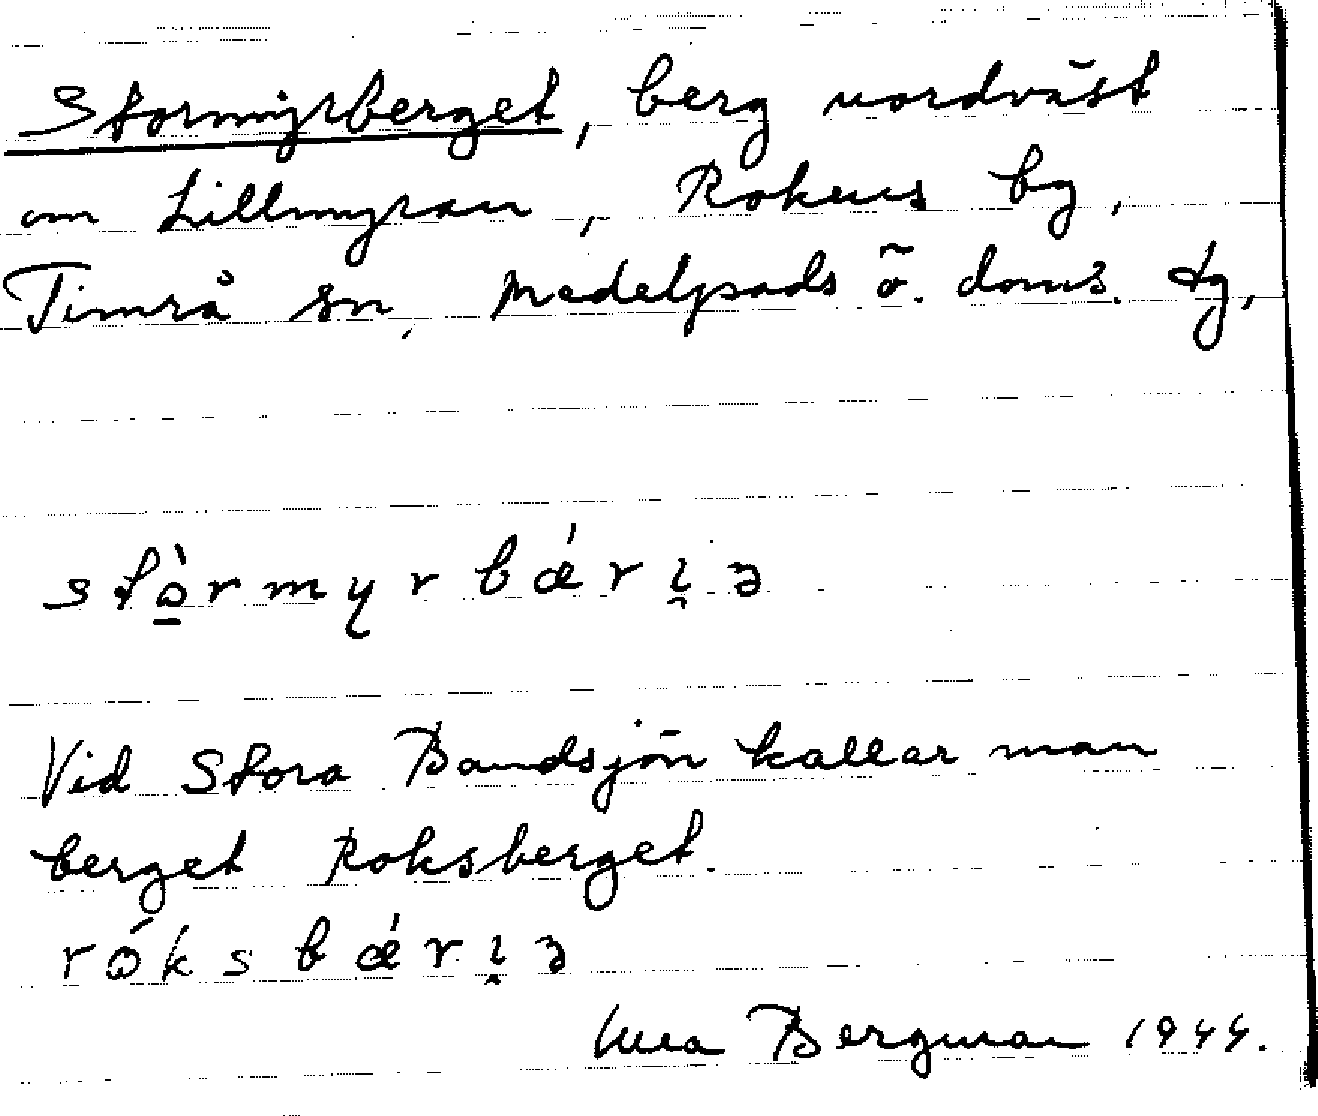 Stormyrberget, berg nordväst
om Lillmyran, Rokens by,
Timrå sn, Medelpads ö. doms. tg,
stò̱rmyrbǽri̯ə
Vid Stora Bandsjön kallar man
berget Roksberget.
róksbǽri̯ə
Bergman 1944.